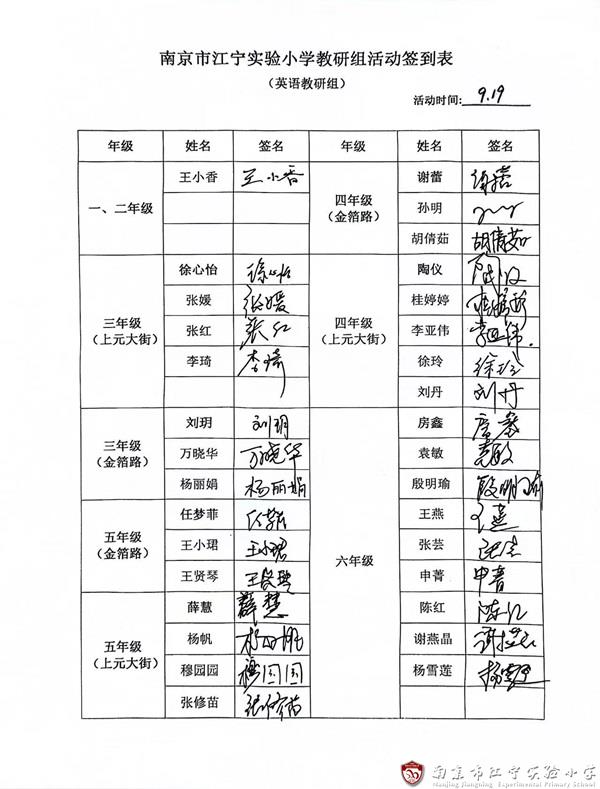 南京市江宁实验小学教研组活动签到表
（英语教研组）
活动时间: 9.19
年级 姓名 签名 年级 姓名 签名
一、二年级 王小香 王小香 四年级（金箔路） 谢蕾 谢蕾
孙明
胡倩茹 胡倩茹
三年级（上元大街） 徐心怡 徐心怡 四年级（上元大街） 陶仪 陶仪
张媛 张媛 桂婷婷 桂婷婷
张红 张红 李亚伟 李亚伟
李琦 李琦 徐玲 徐玲
刘丹 刘丹
三年级（金箔路） 刘玥 刘玥 六年级 房鑫 房鑫
万晓华 万晓华 袁敏 袁敏
杨丽娟 杨丽娟 殷明瑜 殷明瑜
五年级（金箔路） 任梦菲 王燕 王燕
王小珺 王小珺 张芸 张芸
王贤琴 王贤琴 申菁 申菁
五年级（上元大街） 薛慧 薛慧 陈红 陈红
杨帆 杨帆 谢燕晶
穆园园 穆园园 杨雪莲 杨雪莲
张修苗 张修苗
南京市江宁实验小学
Nanjing Jiangning Experimental Primary School